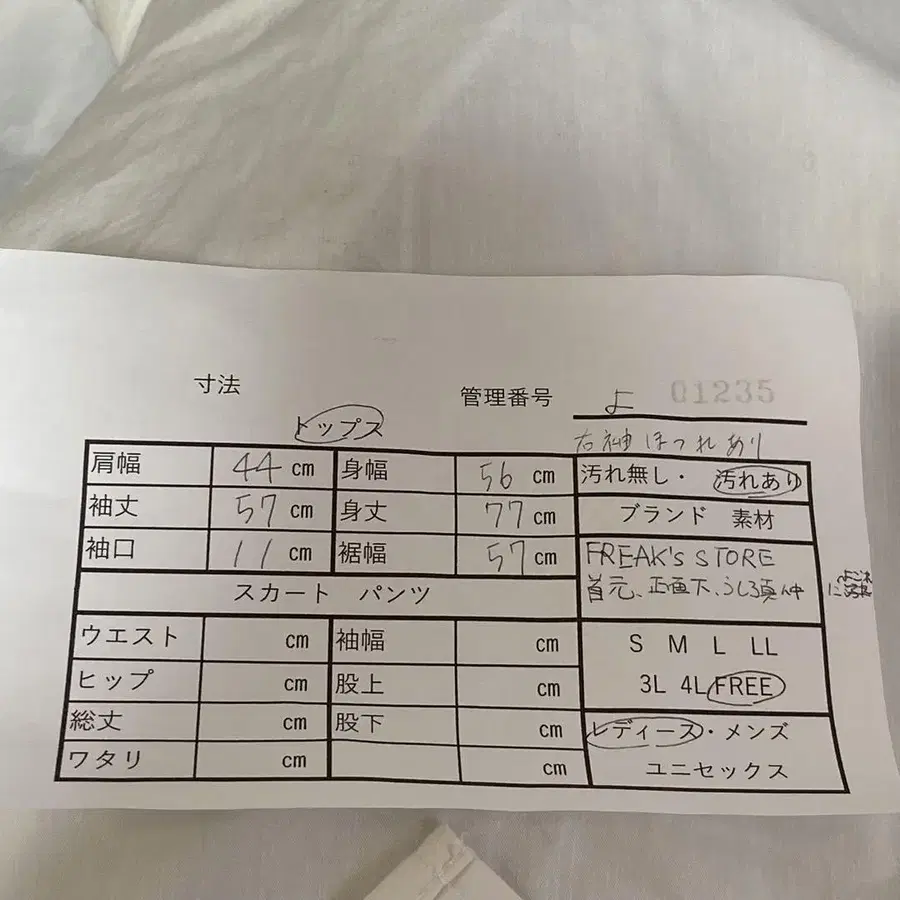 寸法
管理番号 よ 01235
トップス
右袖ほつれあり
肩幅 44 cm 身幅 56 cm 汚れ無し・ 汚れあり
袖丈 57 cm 身丈 77 cm ブランド 素材
袖口 11 cm 裾幅 57 cm FREAK's STORE
首元、正面下、うしろ真ん中
スカート パンツ
ウエスト cm 袖幅 cm S M L LL
ヒップ cm 股上 cm 3L 4L FREE
総丈 cm 股下 cm レディース・メンズ
ワタリ cm cm ユニセックス